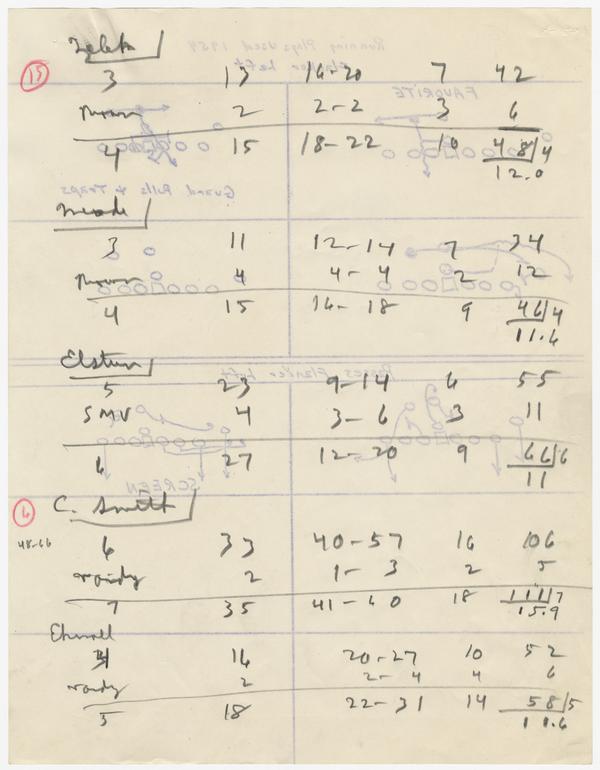 15
3 13 16-20 7 42
2 2-2 3 6
4 15 18-22 10 48/4
12.0
Meade
3 11 12-14 7 34
4 4-4 2 12
4 15 16-18 9 46/4
11.6
Elstun
5 23 9-14 6 55
SMU 4 3-6 3 11
6 27 12-20 9 66/6
11
6 C. Smith
48-66 6 33 40-57 16 106
2 1-3 2 5
7 35 41-60 18 111/7
15.9
16 20-27 10 52
2 2-4 4 6
5 18 22-31 14 58/5
11.6
Running Plays Used 1959
Flanker Left
FAVORITE
Guard Pulls & Traps
Passes Flanker Left
SCREEN